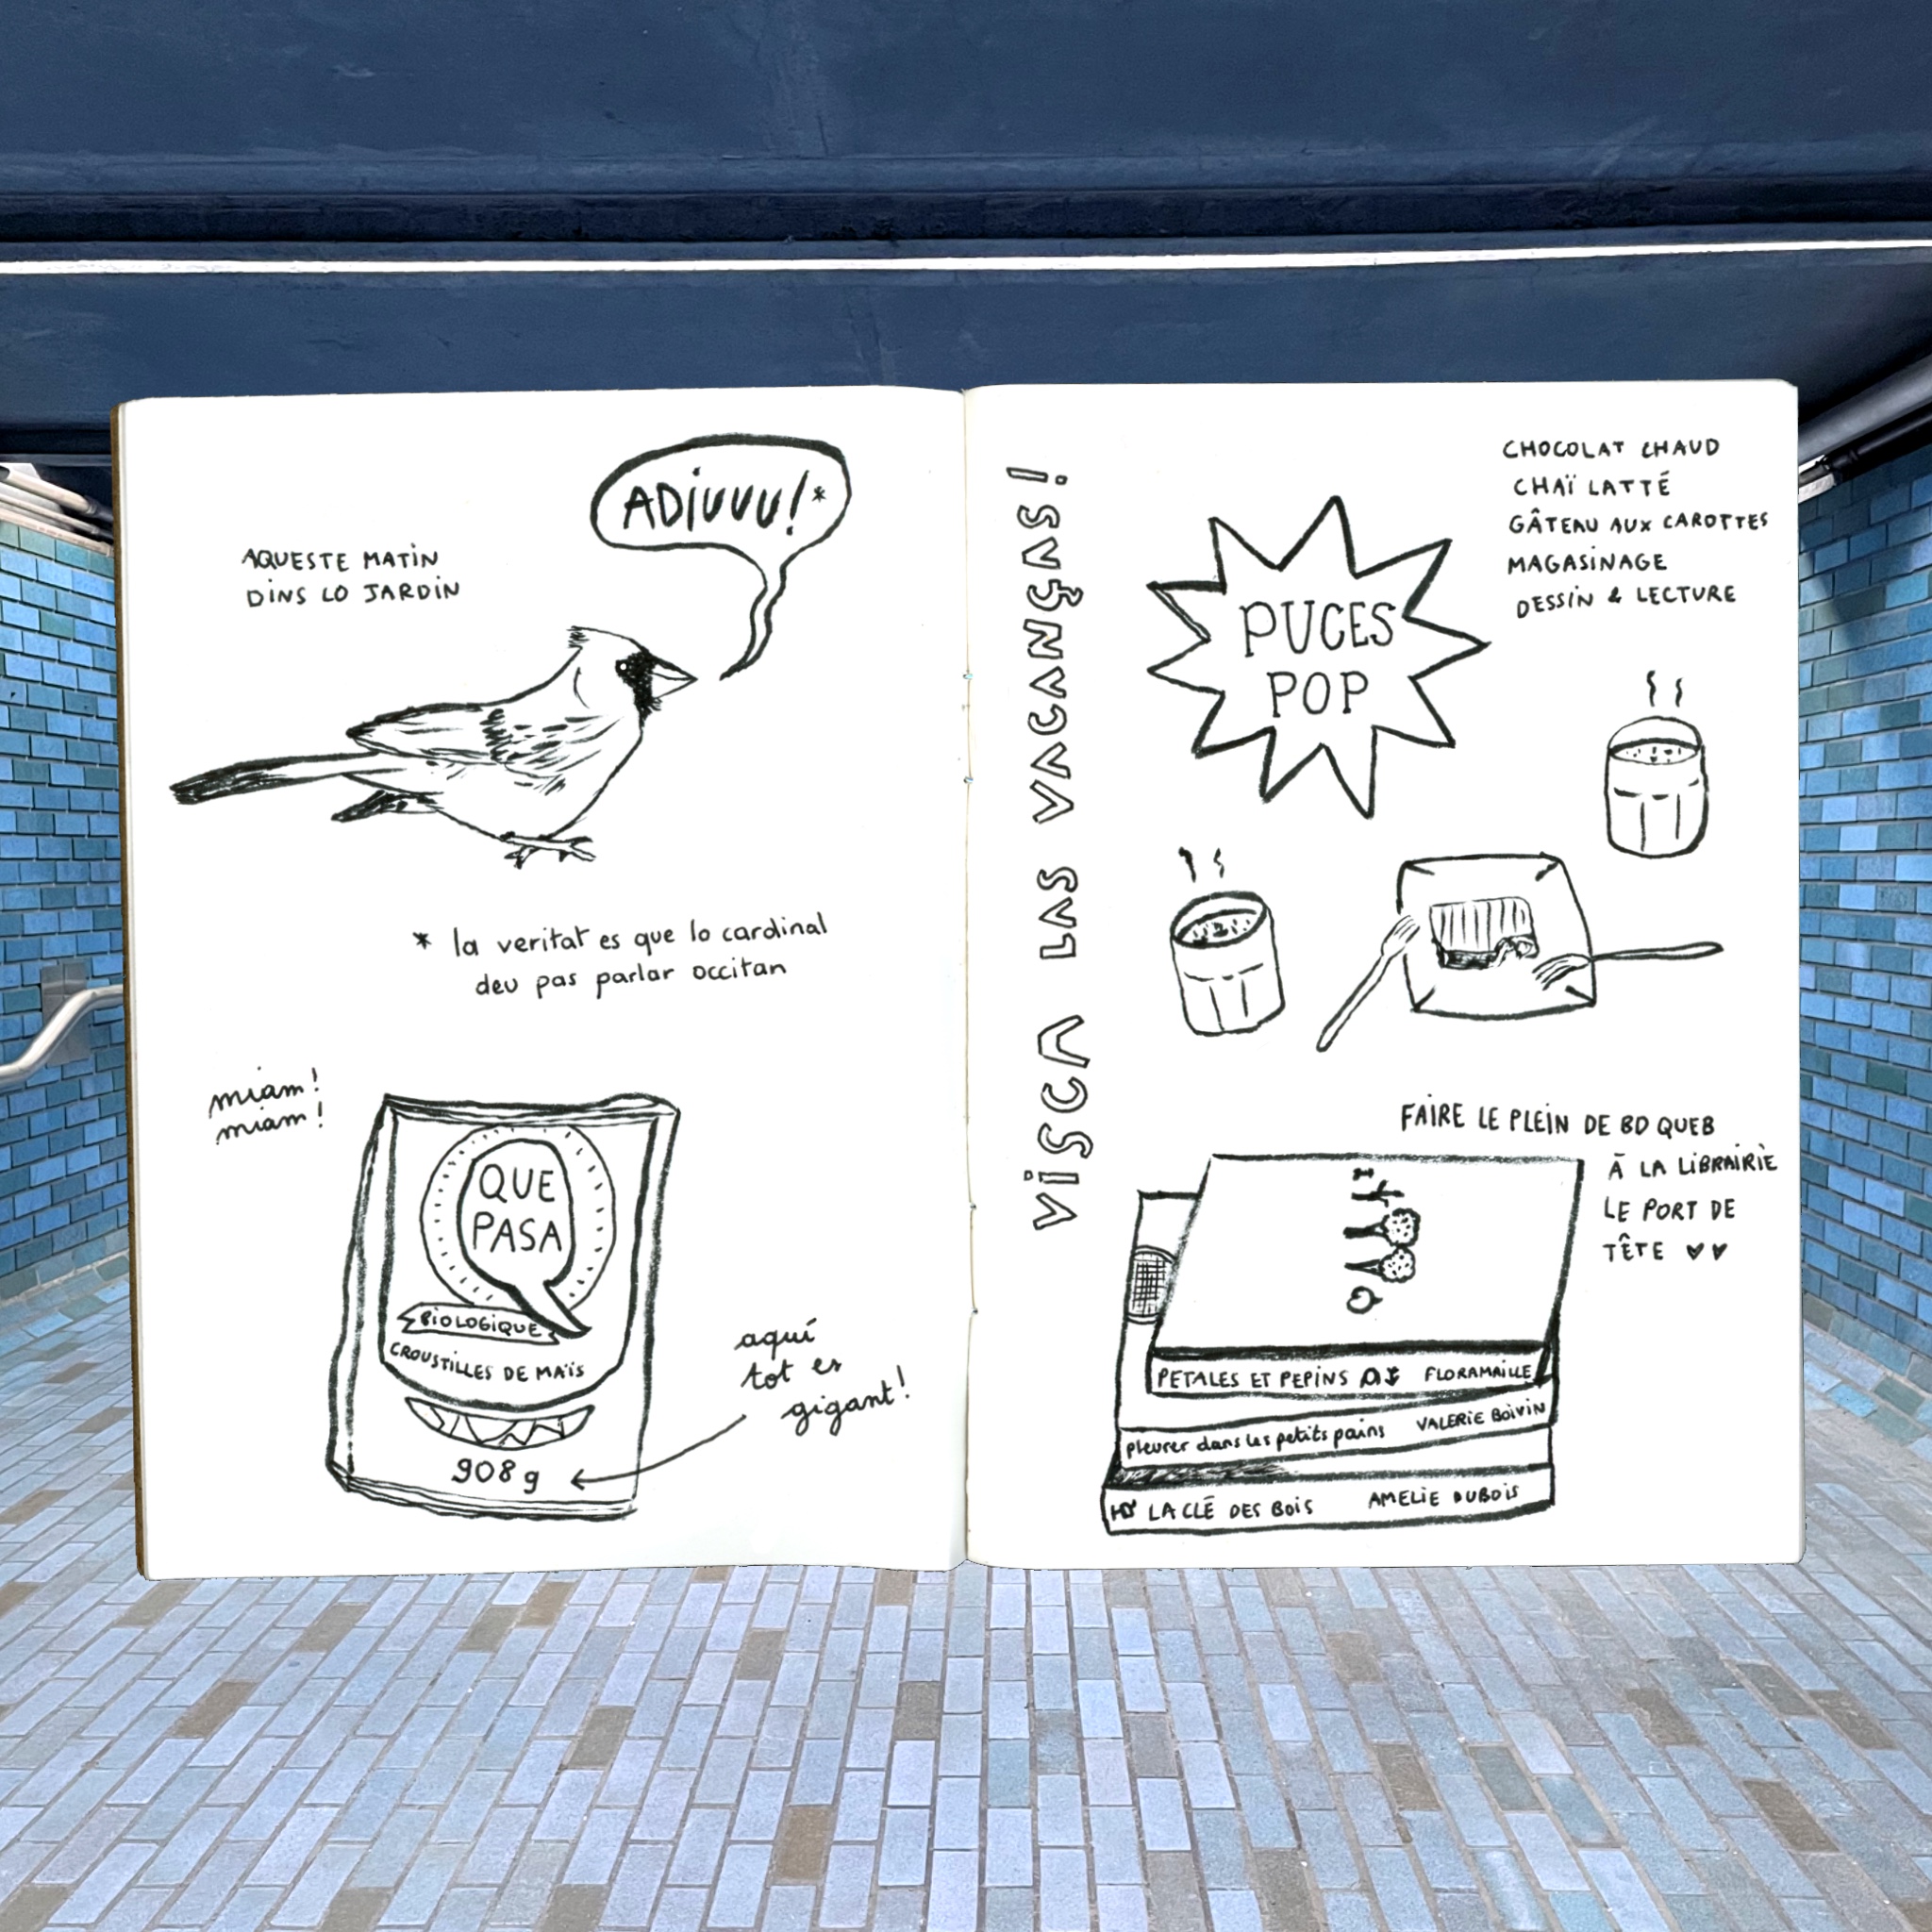 AQUESTE MATIN
DINS LO JARDIN
ADIUUU!*
* la veritat es que lo cardinal
deu pas parlar occitan
miam!
miam!
QUE
PASA
BIOLOGIQUE
CROUSTILLES DE MAÏS
908 g
aquí
tot es
gigant!
VISCA LAS VACANÇAS!
PUCES
POP
CHOCOLAT CHAUD
CHAÏ LATTÉ
GÂTEAU AUX CAROTTES
MAGASINAGE
DESSIN & LECTURE
FAIRE LE PLEIN DE BD QUEB
À LA LIBRAIRIE
LE PORT DE
TÊTE ♥♥
PETALES ET PEPINS FLORAMAILLE
pleurer dans les petits pains VALERIE BOIVIN
LA CLÉ DES BOIS AMELIE DUBOIS